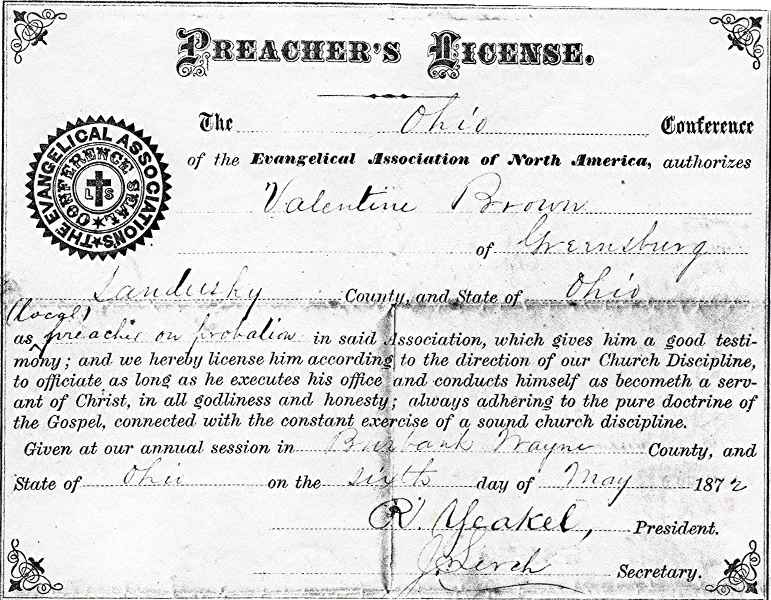 PREACHER'S LICENSE.
The Ohio Conference
of the Evangelical Association of North America, authorizes
Valentine Brown
of Greensburg
Sandusky County, and State of Ohio
(local)
as preacher on probation in said Association, which gives him a good testi-
mony; and we hereby license him according to the direction of our Church Discipline,
to officiate as long as he executes his office and conducts himself as becometh a serv-
ant of Christ, in all godliness and honesty; always adhering to the pure doctrine of
the Gospel, connected with the constant exercise of a sound church discipline.
Given at our annual session in Burbank Wayne County, and
State of Ohio on the sixth day of May 1872
R. Yeakel, President.
Secretary.
THE EVANGELICAL ASSOCIATIONS
CONFERENCE SEAL
L S